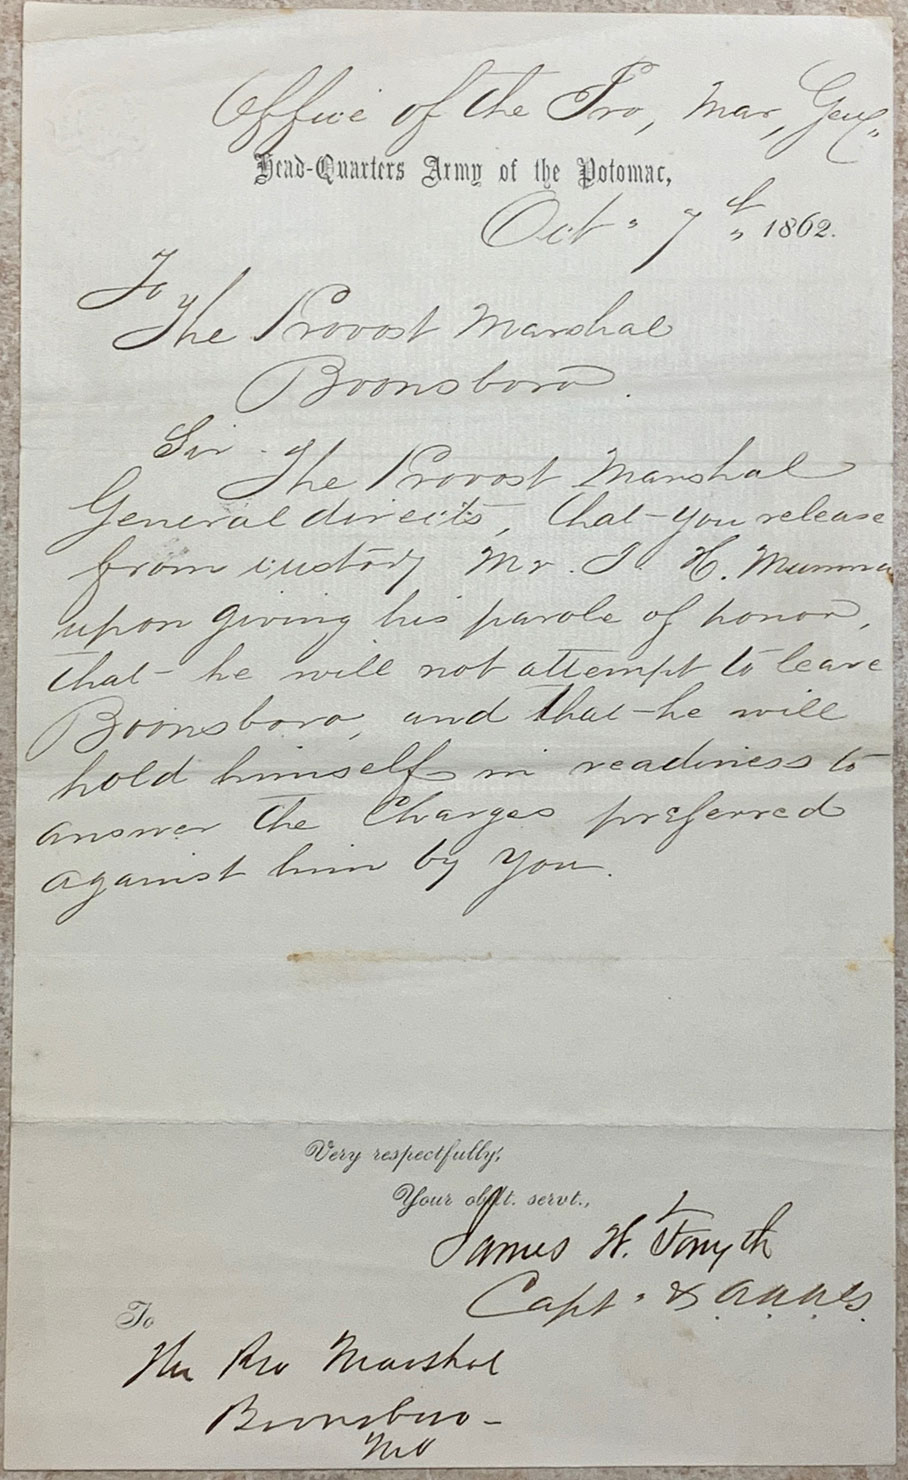 Office of the Pro, Mar, Genl,,
Head-Quarters Army of the Potomac,
Oct " 7th " 1862.
To
The Provost Marshal
Boonsboro.
Sir. The Provost Marshal
General directs, that you release
from custody Mr. J. H. Mumma
upon giving his parole of honor,
that he will not attempt to leave
Boonsboro, and that he will
hold himself in readiness to
answer the Charges preferred
against him by You.
Very respectfully,
Your obdt. servt.,
James W. Forsyth
Capt. & A.A.A.G.
To
The Pro Marshal
Boonsboro -
Md